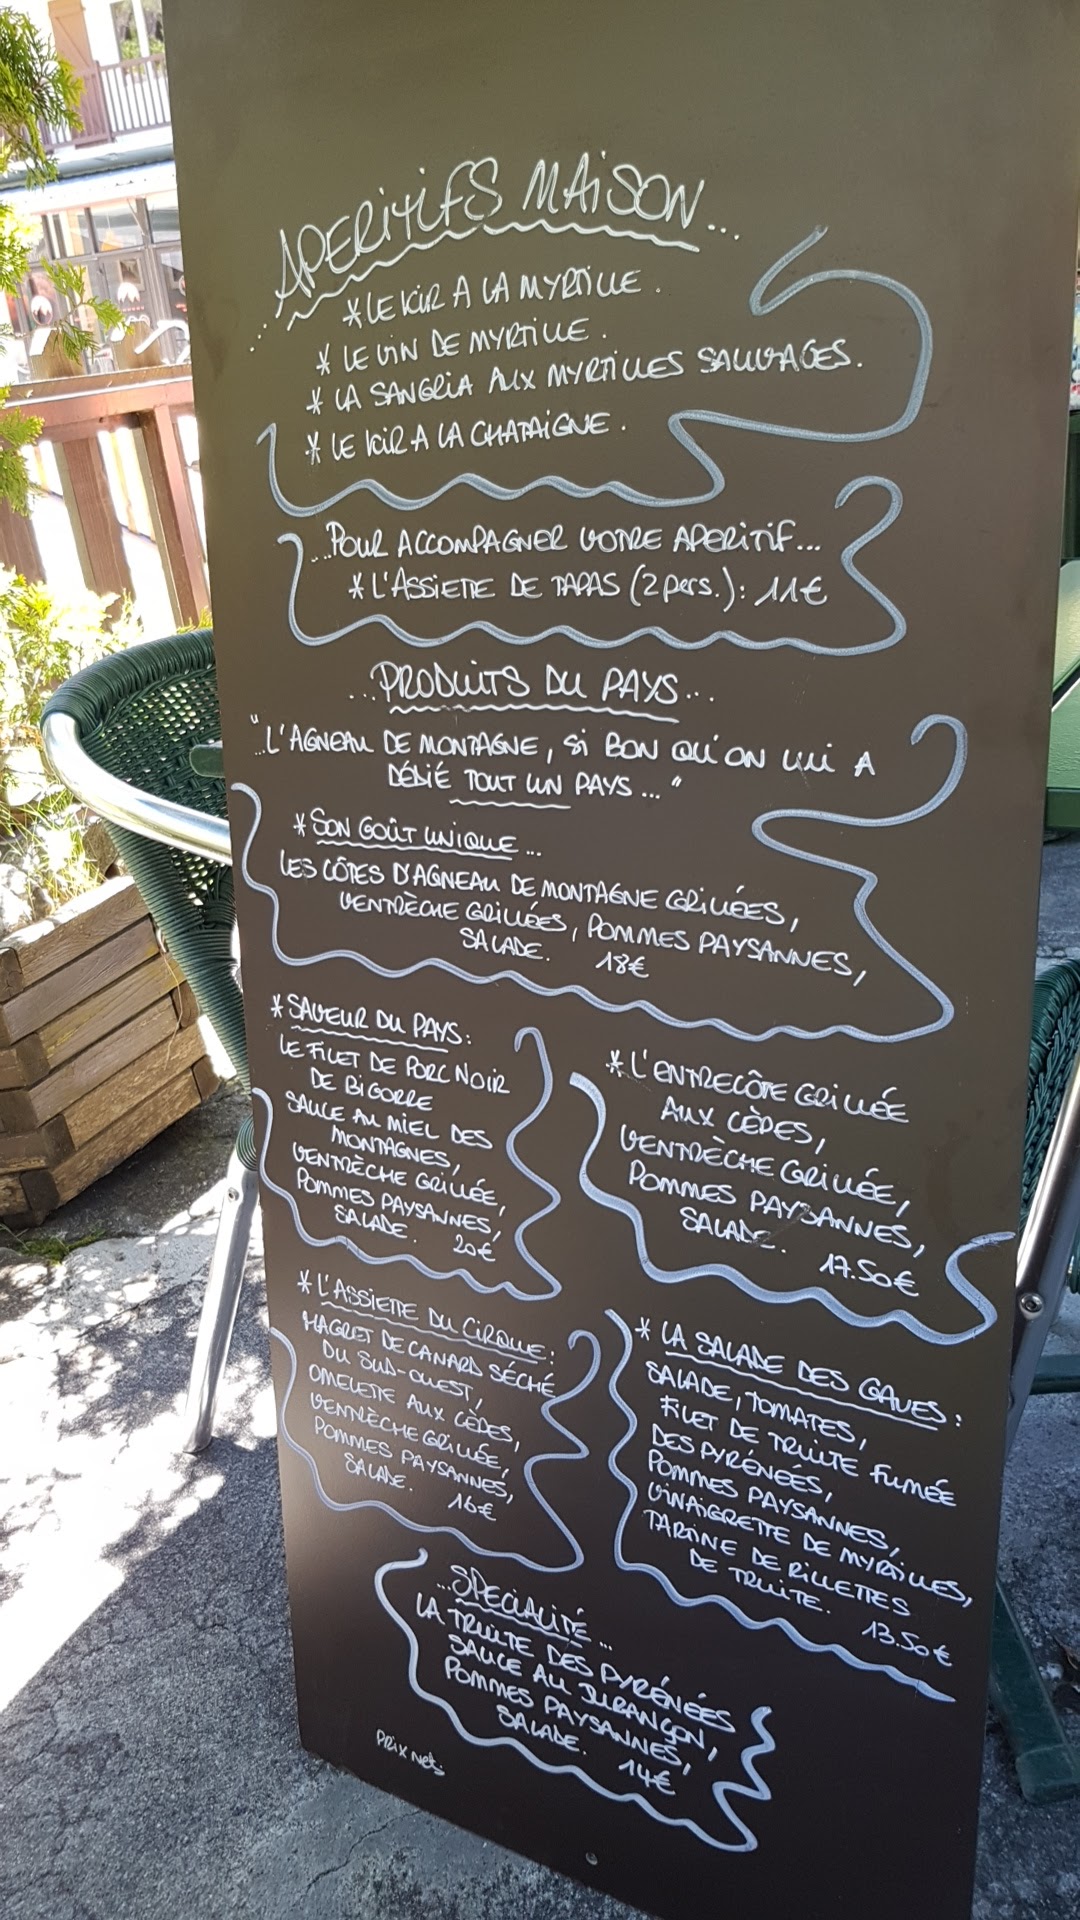 APERITIFS MAISON...
...
* LE KIR A LA MYRTILLE.
* LE VIN DE MYRTILLE.
* LA SANGRIA AUX MYRTILLES SAUVAGES.
* LE KIR A LA CHATAIGNE.
...POUR ACCOMPAGNER VOTRE APERITIF...
* L'ASSIETTE DE TAPAS (2 pers.): 11€
...PRODUITS DU PAYS...
"...L'AGNEAU DE MONTAGNE, SI BON QU'ON LUI A
DÉDIÉ TOUT UN PAYS..."
* SON GOÛT UNIQUE...
LES CÔTES D'AGNEAU DE MONTAGNE GRILLÉES,
VENTRÈCHE GRILLÉES, POMMES PAYSANNES,
SALADE. 18€
* SAVEUR DU PAYS:
LE FILET DE PORC NOIR
DE BIGORRE
SAUCE AU MIEL DES
MONTAGNES,
VENTRÈCHE GRILLÉE,
POMMES PAYSANNES,
SALADE. 20€
* L'ENTRECÔTE GRILLÉE
AUX CÈPES,
VENTRÈCHE GRILLÉE,
POMMES PAYSANNES,
SALADE. 17.50€
* L'ASSIETTE DU CIRQUE:
MAGRET DE CANARD SÉCHÉ
DU SUD-OUEST,
OMELETTE AUX CÈPES,
VENTRÈCHE GRILLÉE,
POMMES PAYSANNES,
SALADE. 16€
* LA SALADE DES GAVES:
SALADE, TOMATES,
FILET DE TRUITE FUMÉE
DES PYRÉNÉES,
POMMES PAYSANNES,
VINAIGRETTE DE MYRTILLES,
TARTINE DE RILLETTES
DE TRUITE. 13.50€
...SPECIALITÉ...
LA TRUITE DES PYRÉNÉES
SAUCE AU JURANÇON,
POMMES PAYSANNES,
SALADE. 14€
Prix nets